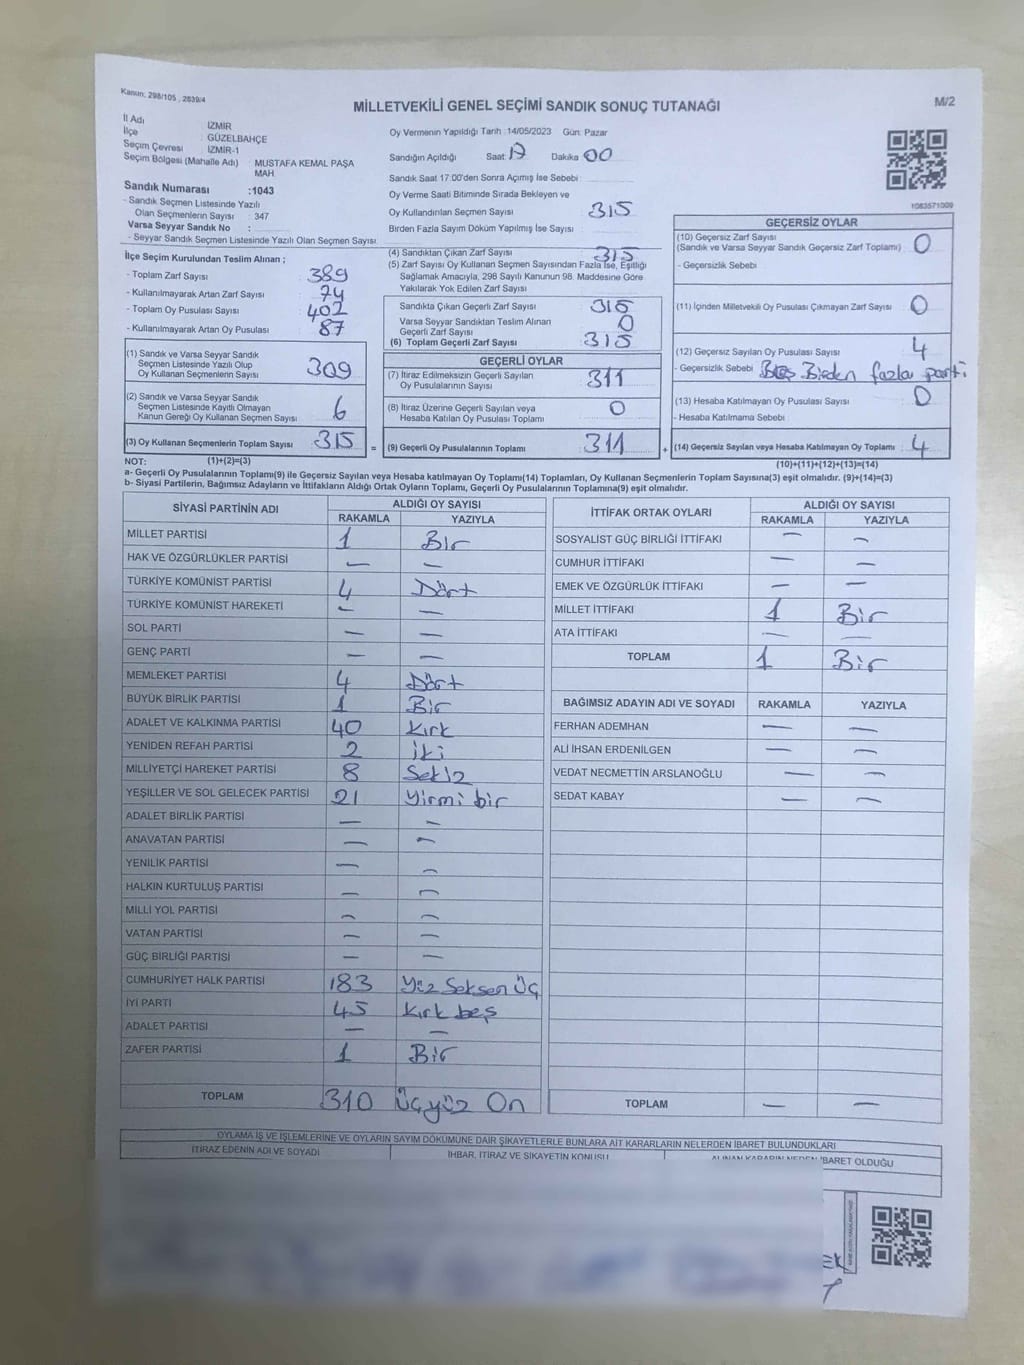 Kanun: 298/105 , 2839/4
MİLLETVEKİLİ GENEL SEÇİMİ SANDIK SONUÇ TUTANAĞI
M/2
İl Adı : İZMİR
İlçe : GÜZELBAHÇE
Seçim Çevresi : İZMİR-1
Seçim Bölgesi (Mahalle Adı) : MUSTAFA KEMAL PAŞA MAH.
Sandık Numarası :1043
- Sandık Seçmen Listesinde Yazılı
Olan Seçmenlerin Sayısı : 347
Varsa Seyyar Sandık No :
- Seyyar Sandık Seçmen Listesinde Yazılı Olan Seçmen Sayısı
Oy Vermenin Yapıldığı Tarih :14/05/2023 Gün: Pazar
Sandığın Açıldığı Saat 17 Dakika 00
Sandık Saat 17:00'den Sonra Açımış İse Sebebi :
Oy Verme Saati Bitiminde Sırada Bekleyen ve
Oy Kullandırılan Seçmen Sayısı 315
Birden Fazla Sayım Döküm Yapılmış İse Sayısı :
1083571009
İlçe Seçim Kurulundan Teslim Alınan ;
- Toplam Zarf Sayısı 389
- Kullanılmayarak Artan Zarf Sayısı 74
- Toplam Oy Pusulası Sayısı 402
- Kullanılmayarak Artan Oy Pusulası 87
(1) Sandık ve Varsa Seyyar Sandık
Seçmen Listesinde Yazılı Olup
Oy Kullanan Seçmenlerin Sayısı 309
(2) Sandık ve Varsa Seyyar Sandık
Seçmen Listesinde Kayıtlı Olmayan
Kanun Gereği Oy Kullanan Seçmen Sayısı 6
(3) Oy Kullanan Seçmenlerin Toplam Sayısı 315 =
(1)+(2)=(3)
(4) Sandıktan Çıkan Zarf Sayısı 315
(5) Zarf Sayısı Oy Kullanan Seçmen Sayısından Fazla İse, Eşitliği
Sağlamak Amacıyla, 298 Sayılı Kanunun 98. Maddesine Göre
Yakılarak Yok Edilen Zarf Sayısı :
Sandıkta Çıkan Geçerli Zarf Sayısı 315
Varsa Seyyar Sandıktan Teslim Alınan
Geçerli Zarf Sayısı 0
(6) Toplam Geçerli Zarf Sayısı 315
GEÇERLİ OYLAR
(7) İtiraz Edilmeksizin Geçerli Sayılan
Oy Pusulalarının Sayısı 311
(8) İtiraz Üzerine Geçerli Sayılan veya
Hesaba Katılan Oy Pusulası Toplamı 0
(9) Geçerli Oy Pusulalarının Toplamı 311 +
GEÇERSİZ OYLAR
(10) Geçersiz Zarf Sayısı
(Sandık ve Varsa Seyyar Sandık Geçersiz Zarf Toplamı) 0
- Geçersizlik Sebebi
(11) İçinden Milletvekili Oy Pusulası Çıkmayan Zarf Sayısı 0
(12) Geçersiz Sayılan Oy Pusulası Sayısı 4
- Geçersizlik Sebebi Birden fazla parti
(13) Hesaba Katılmayan Oy Pusulası Sayısı 0
- Hesaba Katılmama Sebebi
(14) Geçersiz Sayılan veya Hesaba Katılmayan Oy Toplamı : 4
(10)+(11)+(12)+(13)=(14)
NOT:
a- Geçerli Oy Pusulalarının Toplamı(9) ile Geçersiz Sayılan veya Hesaba katılmayan Oy Toplamı(14) Toplamları, Oy Kullanan Seçmenlerin Toplam Sayısına(3) eşit olmalıdır. (9)+(14)=(3)
b- Siyasi Partilerin, Bağımsız Adayların ve İttifakların Aldığı Ortak Oyların Toplamı, Geçerli Oy Pusulalarının Toplamına(9) eşit olmalıdır.
SİYASİ PARTİNİN ADI ALDIĞI OY SAYISI
RAKAMLA YAZIYLA
MİLLET PARTİSİ 1 Bir
HAK VE ÖZGÜRLÜKLER PARTİSİ — —
TÜRKİYE KOMÜNİST PARTİSİ 4 Dört
TÜRKİYE KOMÜNİST HAREKETİ — —
SOL PARTİ — —
GENÇ PARTİ — —
MEMLEKET PARTİSİ 4 Dört
BÜYÜK BİRLİK PARTİSİ 1 Bir
ADALET VE KALKINMA PARTİSİ 40 Kırk
YENİDEN REFAH PARTİSİ 2 iki
MİLLİYETÇİ HAREKET PARTİSİ 8 Sekiz
YEŞİLLER VE SOL GELECEK PARTİSİ 21 Yirmi bir
ADALET BİRLİK PARTİSİ — —
ANAVATAN PARTİSİ — —
YENİLİK PARTİSİ — —
HALKIN KURTULUŞ PARTİSİ — —
MİLLİ YOL PARTİSİ — —
VATAN PARTİSİ — —
GÜÇ BİRLİĞİ PARTİSİ — —
CUMHURİYET HALK PARTİSİ 183 Yüz Seksen Üç
İYİ PARTİ 45 Kırk beş
ADALET PARTİSİ — —
ZAFER PARTİSİ 1 Bir
TOPLAM 310 Üçyüz On
İTTİFAK ORTAK OYLARI ALDIĞI OY SAYISI
RAKAMLA YAZIYLA
SOSYALİST GÜÇ BİRLİĞİ İTTİFAKI — —
CUMHUR İTTİFAKI — —
EMEK VE ÖZGÜRLÜK İTTİFAKI — —
MİLLET İTTİFAKI 1 Bir
ATA İTTİFAKI — —
TOPLAM 1 Bir
BAĞIMSIZ ADAYIN ADI VE SOYADI RAKAMLA YAZIYLA
FERHAN ADEMHAN — —
ALİ İHSAN ERDENİLGEN — —
VEDAT NECMETTİN ARSLANOĞLU — —
SEDAT KABAY — —
TOPLAM — —
OYLAMA İŞ VE İŞLEMLERİNE VE OYLARIN SAYIM DÖKÜMÜNE DAİR ŞİKAYETLERLE BUNLARA AİT KARARLARIN NELERDEN İBARET BULUNDUKLARI
İTİRAZ EDENİN ADI VE SOYADI
İHBAR, İTİRAZ VE ŞİKAYETİN KONUSU
ALINAN KARARIN NEDEN İBARET OLDUĞU